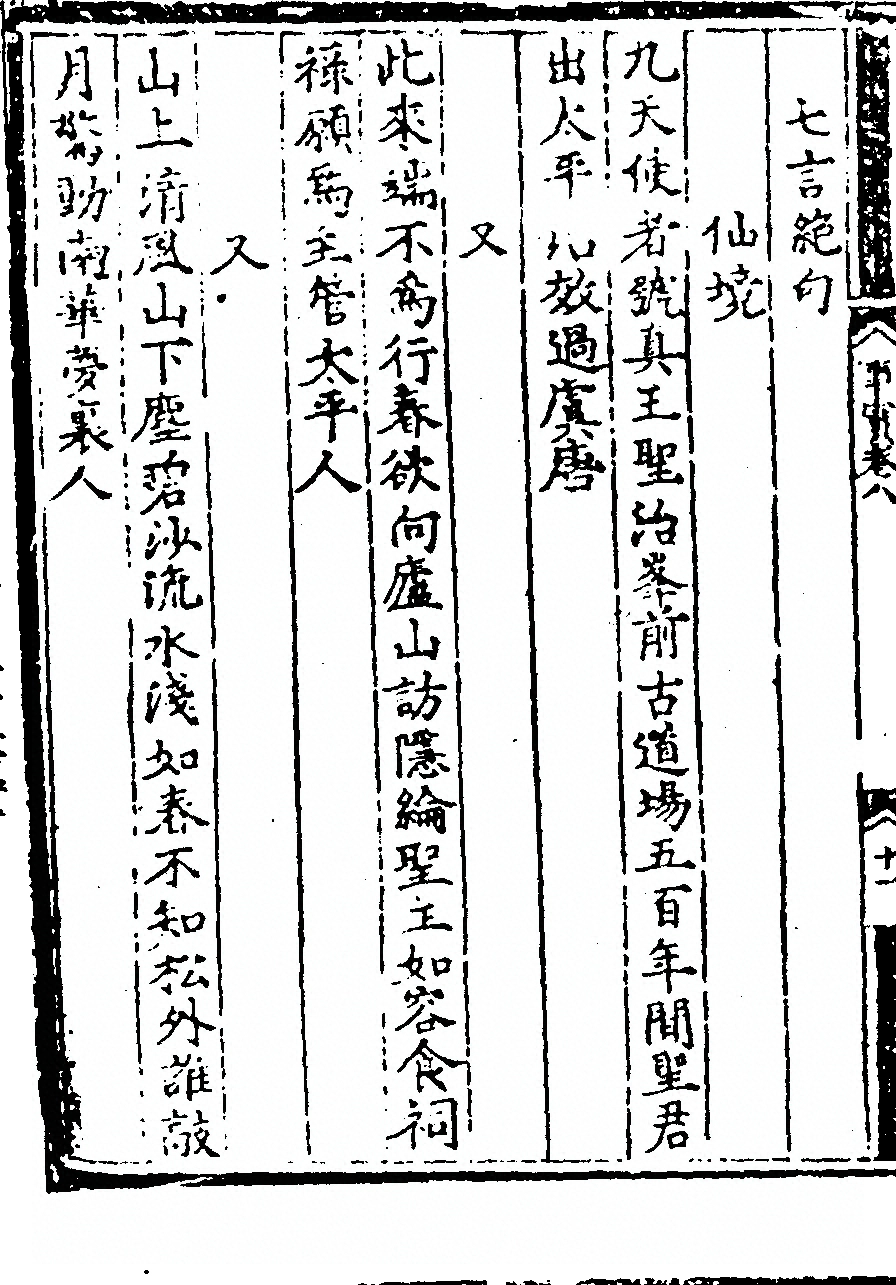 七言絶句
仙境
九天使者號真王聖治峯前古道場五百年間聖君
出太平 功效過虞唐
又
此來端不為行春欲向廬山訪隱綸聖主如容食祠
祿願為主管太平人
又
山上清風山下塵碧沙流水淺如春不知松外誰敲
月驚動南華夢裏人
卷八
十一